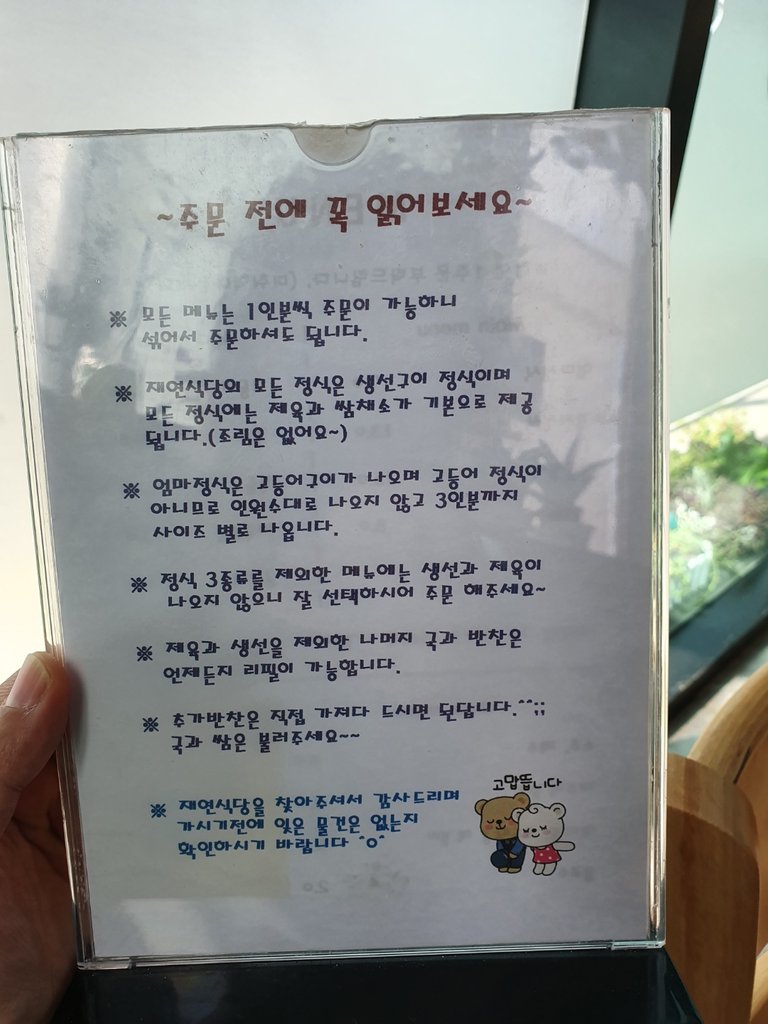 ~주문 전에 꼭 읽어보세요~
※ 모든 메뉴는 1인분씩 주문이 가능하니
섞어서 주문하셔도 됩니다.
※ 재연식당의 모든 정식은 생선구이 정식이며
모든 정식에는 제육과 쌈채소가 기본으로 제공
됩니다.(조림은 없어요~)
※ 엄마정식은 고등어구이가 나오며 고등어 정식이
아니므로 인원수대로 나오지 않고 3인분까지
사이즈 별로 나옵니다.
※ 정식 3종류를 제외한 메뉴에는 생선과 제육이
나오지 않으니 잘 선택하시어 주문 해주세요~
※ 제육과 생선을 제외한 나머지 국과 반찬은
언제든지 리필이 가능합니다.
※ 추가반찬은 직접 가져다 드시면 된답니다.^^;;
국과 쌈은 불러주세요~~
고맙뜹니다
※ 재연식당을 찾아주셔서 감사드리며
가시기전에 잊은 물건은 없는지
확인하시기 바랍니다 ^o^